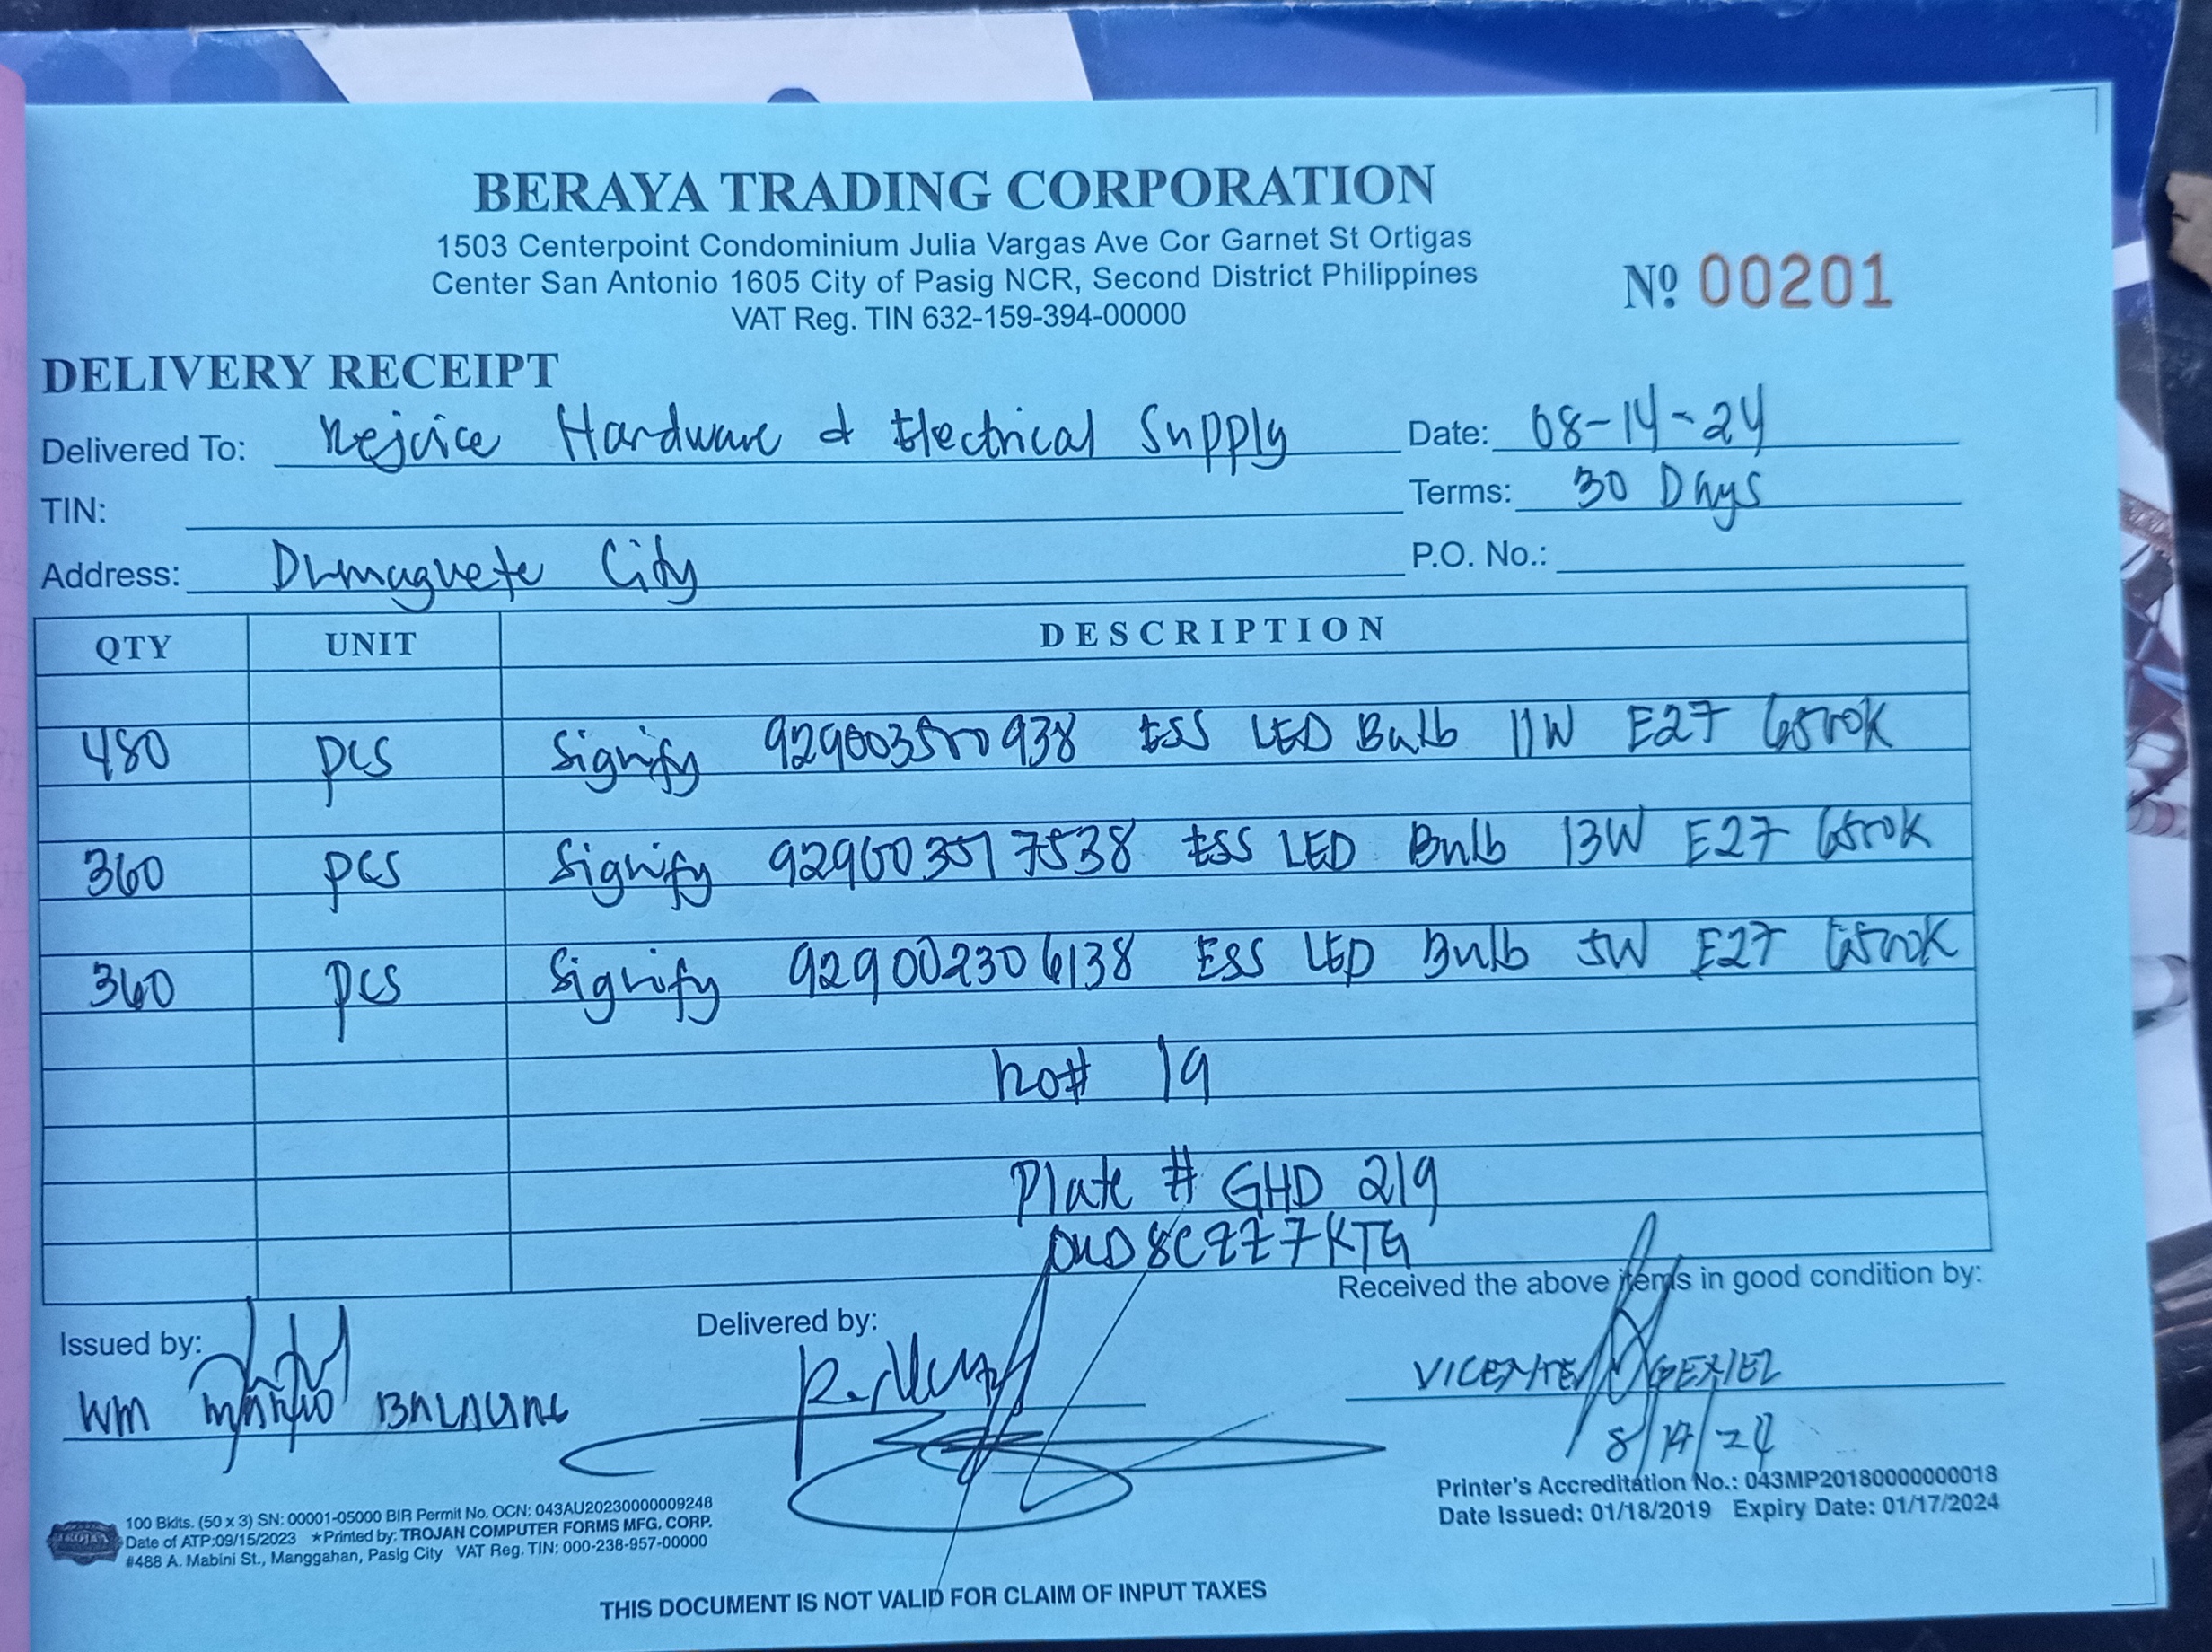 BERAYA TRADING CORPORATION
1503 Centerpoint Condominium Julia Vargas Ave Cor Garnet St Ortigas
Center San Antonio 1605 City of Pasig NCR, Second District Philippines
VAT Reg. TIN 632-159-394-00000
Nº 00201
DELIVERY RECEIPT
Delivered To: Rejoice Hardware & Electrical Supply Date: 08-14-24
TIN: Terms: 30 Days
Address: Dumaguete City P.O. No.:
QTY UNIT DESCRIPTION
480 pcs Signify 929003500938 ESS LED Bulb 11W E27 6500K
360 pcs Signify 929003517538 ESS LED Bulb 13W E27 6500K
360 pcs Signify 929002306138 ESS LED Bulb 5W E27 6500K
19
Plate # GHD 219
Received the above items in good condition by:
Issued by: Delivered by:
VICENTE
8/14/24
Printer's Accreditation No.: 043MP20180000000018
Date Issued: 01/18/2019 Expiry Date: 01/17/2024
100 Bklts. (50 x 3) SN: 00001-05000 BIR Permit No. OCN: 043AU20230000009248
Date of ATP:09/15/2023 ★Printed by: TROJAN COMPUTER FORMS MFG. CORP.
#488 A. Mabini St., Manggahan, Pasig City VAT Reg. TIN: 000-238-957-00000
TROJAN
THIS DOCUMENT IS NOT VALID FOR CLAIM OF INPUT TAXES